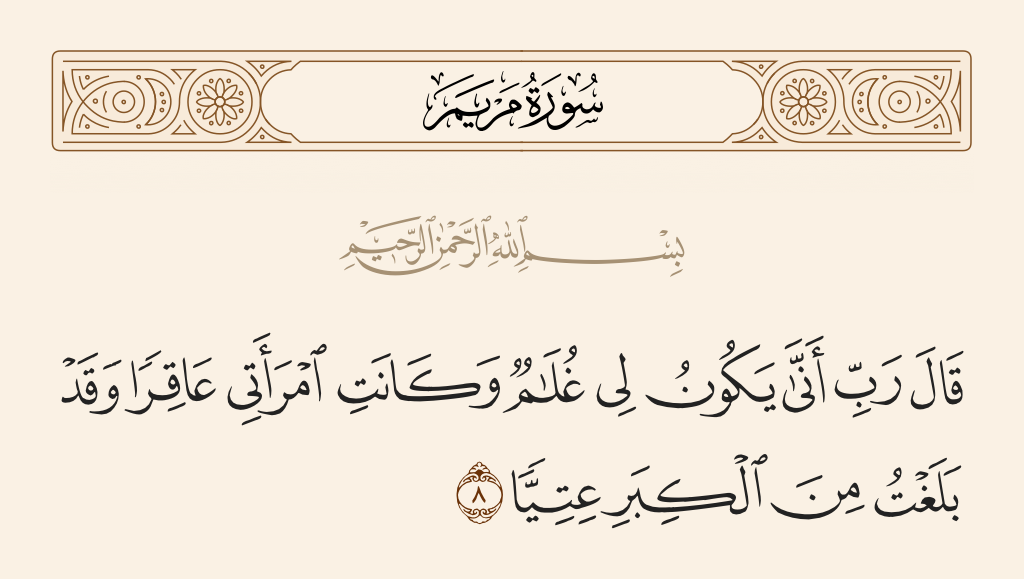 سُورَةُ مَرْيَمَ
بِسْمِ ٱللَّهِ ٱلرَّحْمَٰنِ ٱلرَّحِيمِ
قَالَ رَبِّ أَنَّىٰ يَكُونُ لِى غُلَـٰمٌ وَكَانَتِ ٱمْرَأَتِى عَاقِرًا وَقَدْ
بَلَغْتُ مِنَ ٱلْكِبَرِ عِتِيًّا ٨